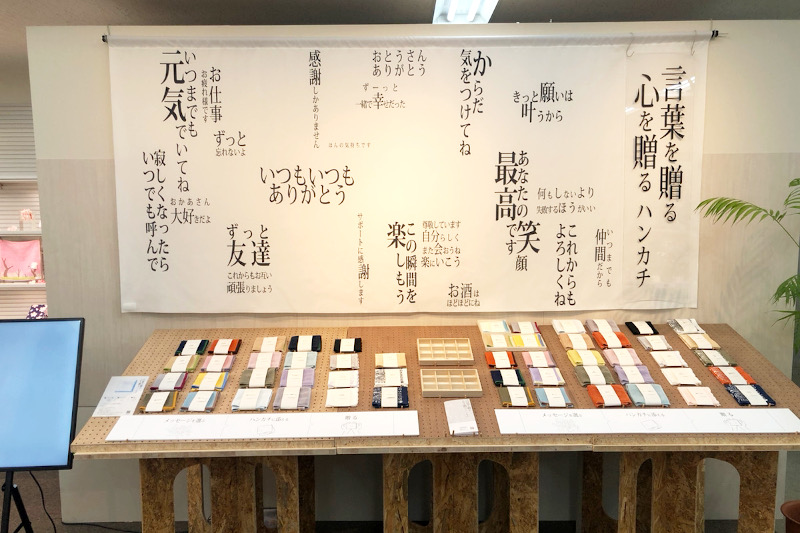 言葉を贈る
心を贈る ハンカチ
願いは
きっと叶うから
からだ
気をつけてね
おとうさん
ありがとう
ずーっと
一緒で幸せだった
感謝
しかありません
ほんの気持ちです
お仕事
お疲れ様です
いつまでも
元気でいてね
ずっと
忘れないよ
いつもいつも
ありがとう
あなたの笑顔
最高です
何もしないより
失敗するほうがいい
いつまでも
仲間だから
これからも
よろしくね
おかあさん
大好きだよ
寂しくなったら
いつでも呼んで
ずっと
友達
これからもお互い
頑張りましょう
サポートに感謝します
この瞬間を
楽しもう
尊敬しています
自分らしく
また会おうね
楽にいこう
お酒は
ほどほどにね
メッセージを選ぶ
ハンカチに添える
贈る
メッセージを選ぶ
ハンカチに添える
贈る